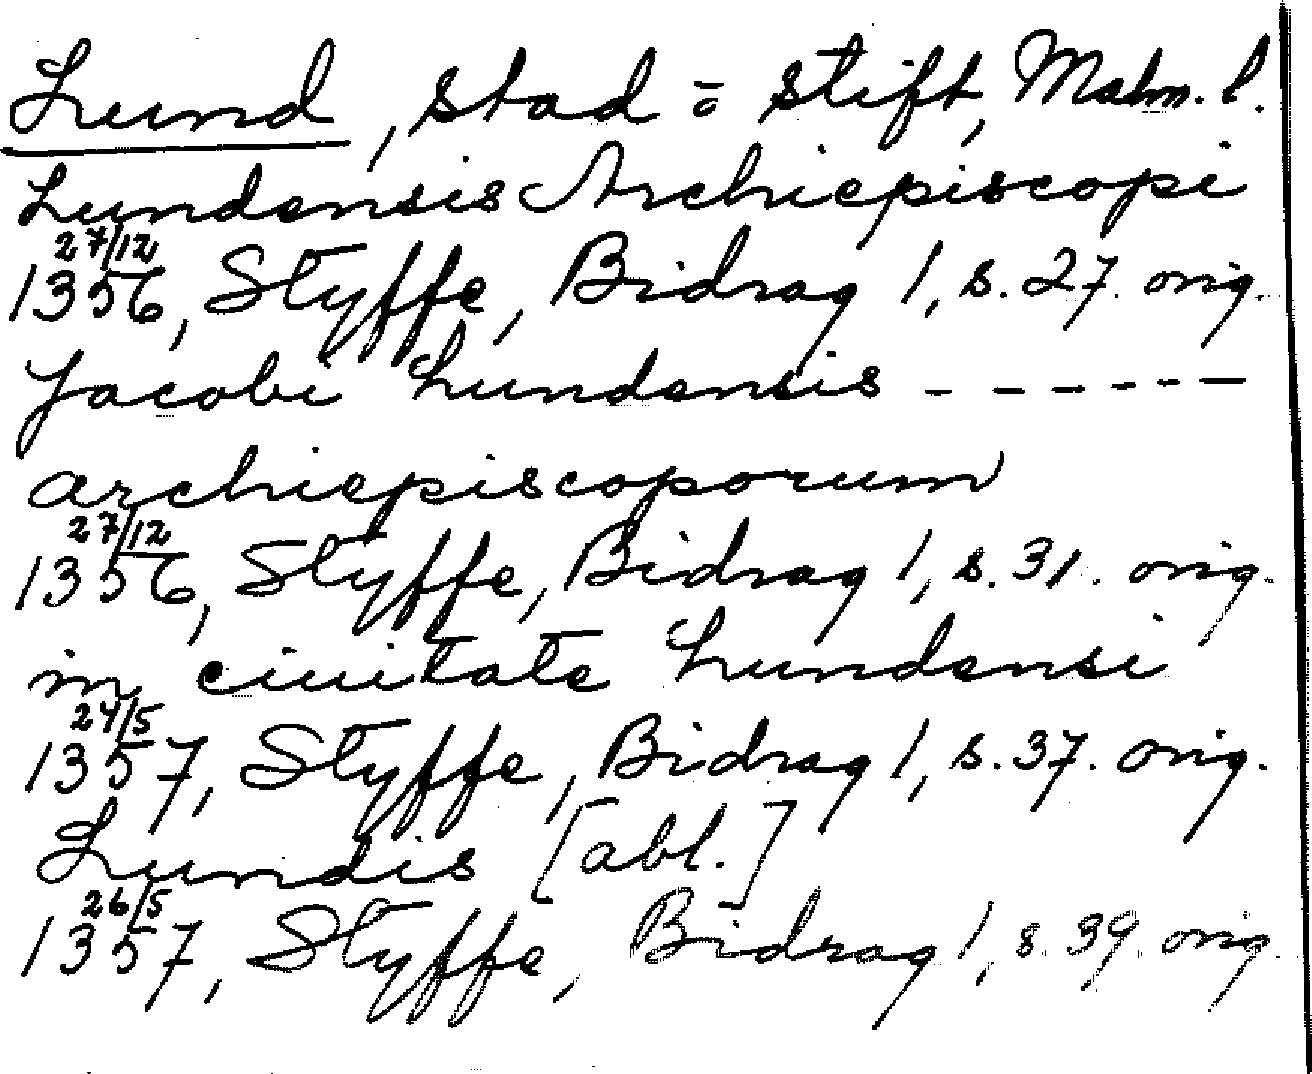 Lund, stad o stift, Malm. l.
Lundensis Archiepiscopi
27/12
1356, Styffe, Bidrag 1, s. 27. orig.
Jacobi Lundensis ------
archiepiscoporum
27/12
1356, Styffe, Bidrag 1, s. 31. orig.
in ciuitate Lundensi
24/5
1357, Styffe, Bidrag 1, s. 37. orig.
Lundis [abl.]
26/5
1357, Styffe, Bidrag 1, s. 39. orig.